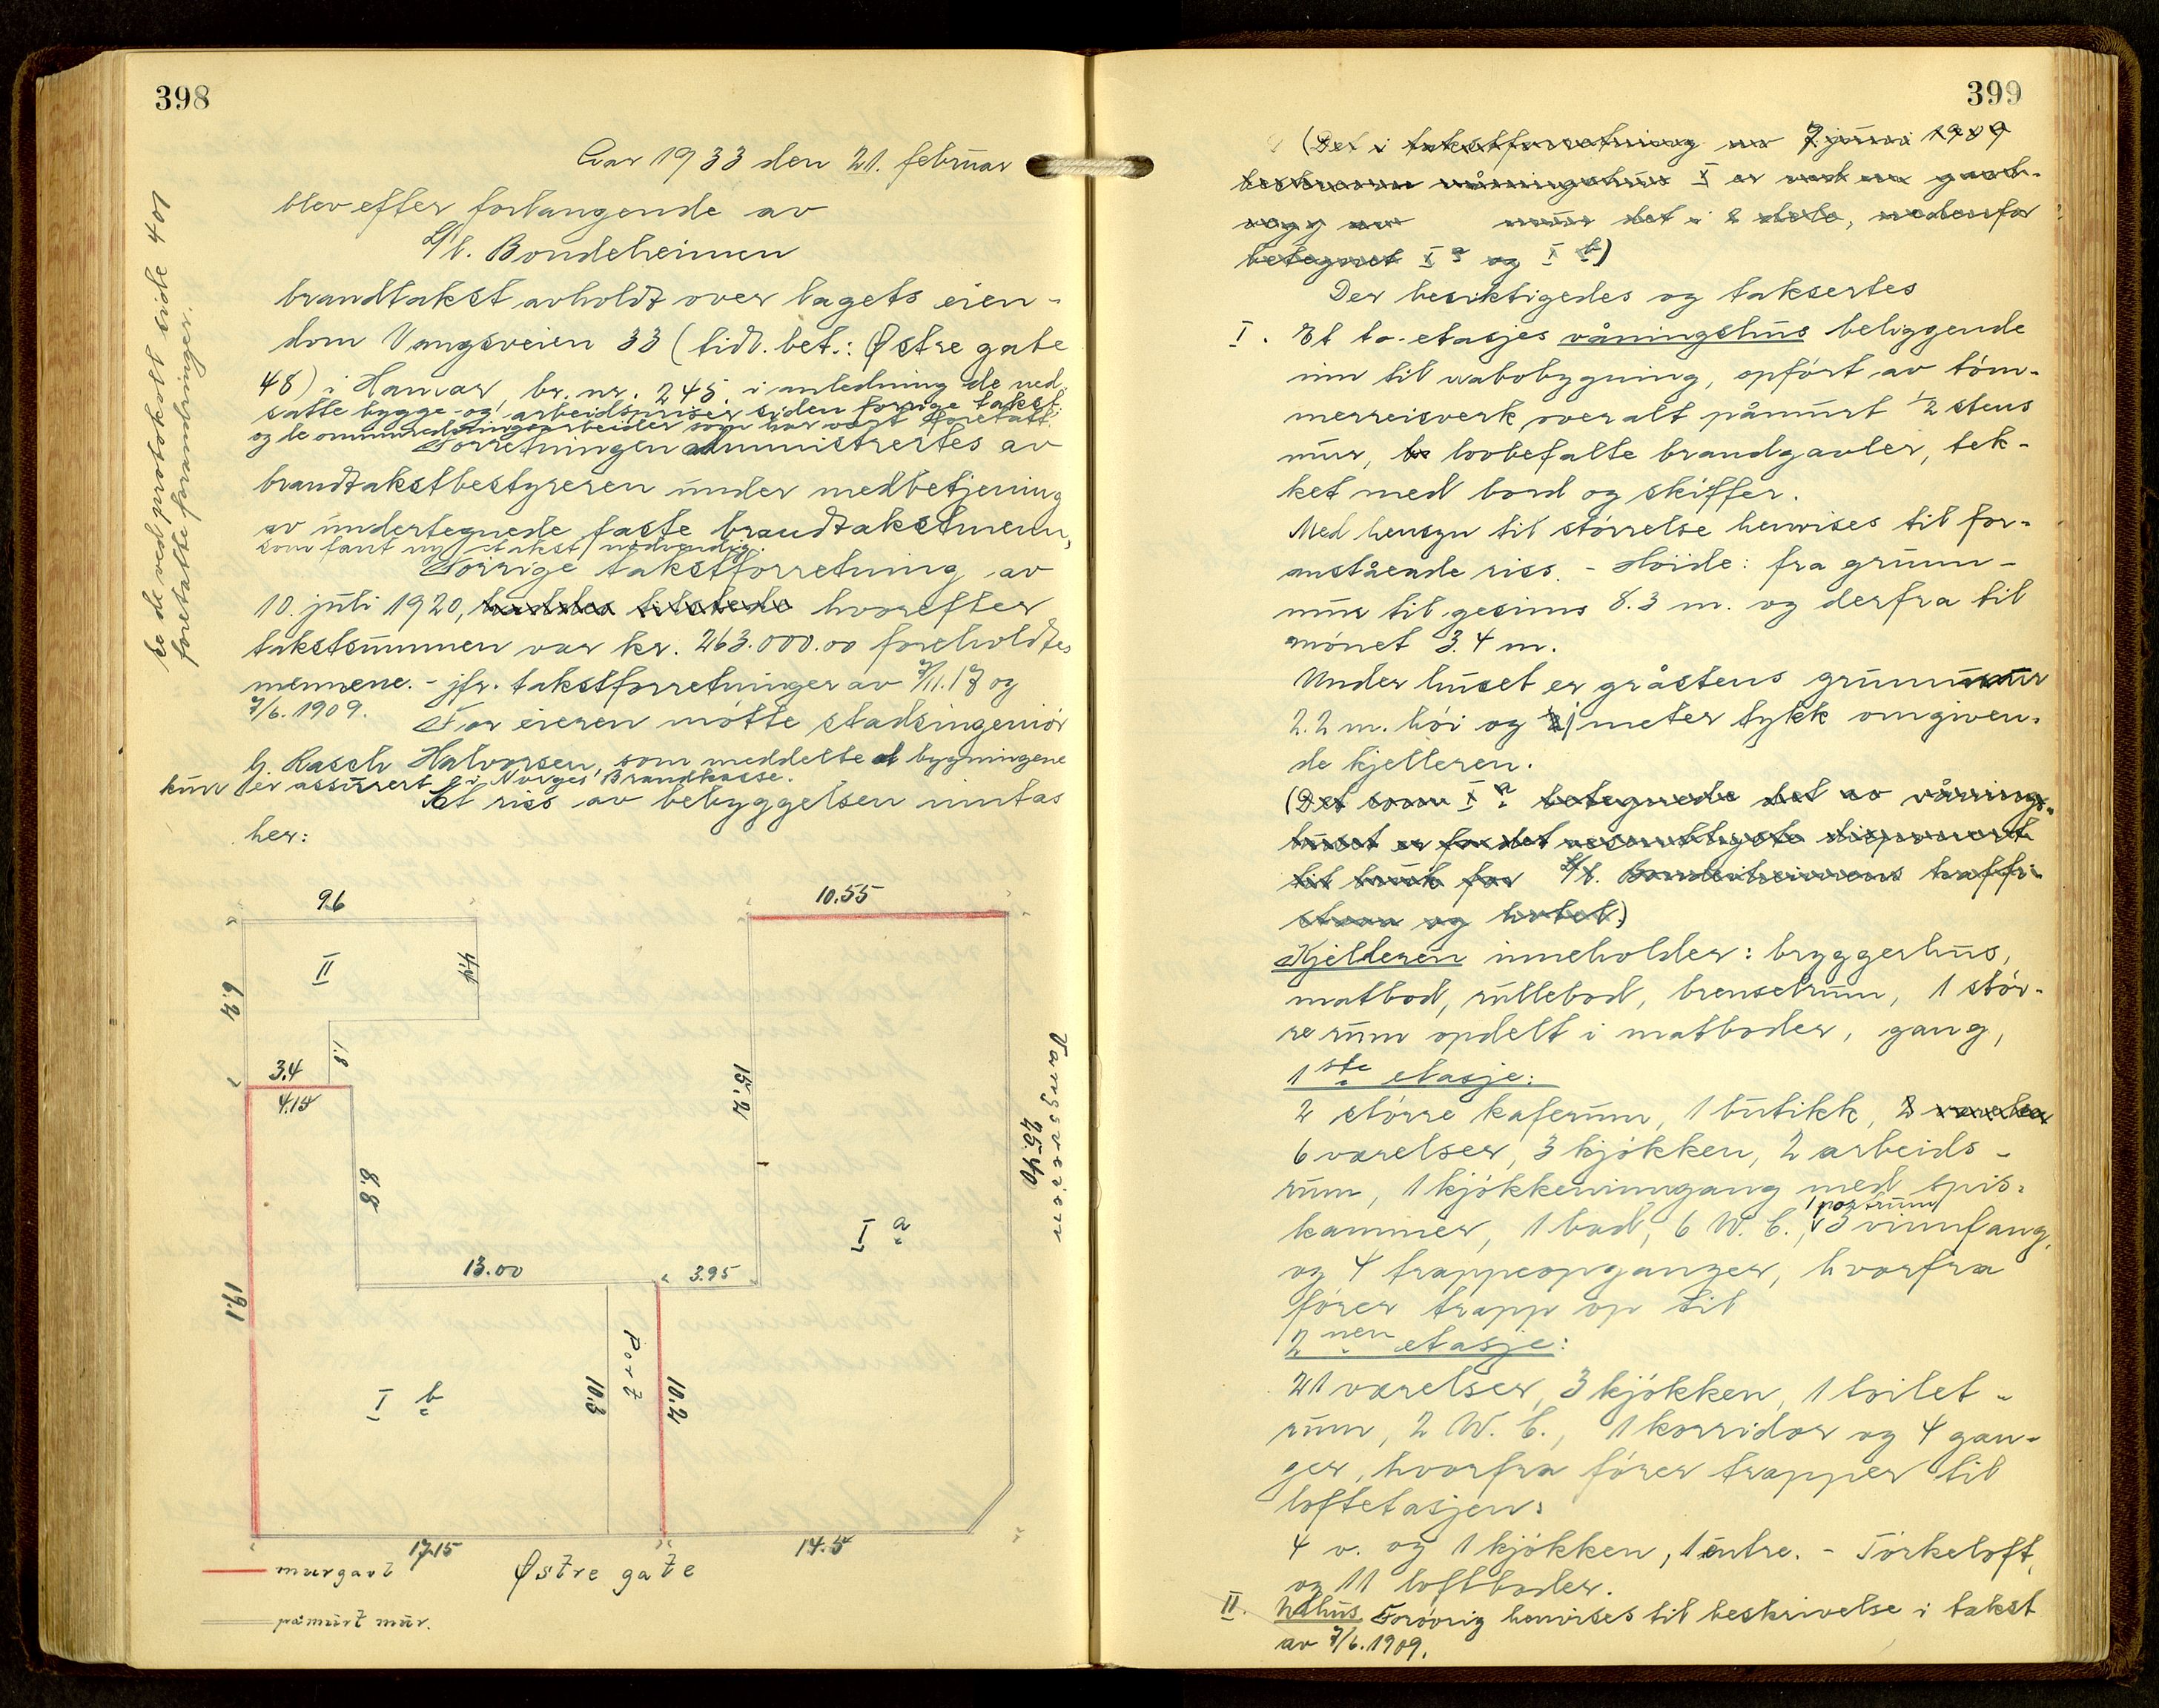 398
Aar 1933 den 21. februar
blev efter forlangende av
L/l. Bondeheimen
brandtakst avholdt over lagets eien-
dom Vangsveien 33 (tidl. bet.: Østre gate
48) i Hamar, br. nr. 245. i anledning de ned-
satte bygge- og arbeidspriser siden forrige takst
og de ominnredningsarbeider som har vært foretatt.
Forretningen administrertes av
brandtakstbestyreren under medbetjening
av undertegnede faste brandtakstmenn,
som fant ny takst nødvendig.
Forrige takstforretning av
10. juli 1920, haddes tilstede hvorefter
takstsummen var kr. 263.000.00 foreholdtes
mennene. - jfr. takstforretninger av 7/11.17 og
7/6. 1909.
For eieren møtte stadsingeniør
H. Rasch Halvorsen, som meddelte at bygningene
kun er assurert i Norges Brandkasse.
Et riss av bebyggelsen inntas
her:
Se de ved protokoll side 401
foretatte forandringer.
9.6
10.55
II
4.4
6.2
1.8
3.4
4.15
15.2
Vangsveien
25.40
8.8
I a
13.00
3.95
19.1
Port
10.3
10.2
I b
17.15
14.5
Østre gate
murgavl
påmurt mur.
399
(Det i takstforretning av 7 juni 1909
beskrevne våningshus I er ved en gavl-
vegg av mur delt i 2 dele, nedenfor
betegnet I a og I b)
Der besiktigedes og taksertes
I. Et to-etasjes våningshus beliggende
inn til nabobygning, opført av tøm-
merreisverk, overalt påmurt 1/2 stens
mur, lovbefalte brandgavler, tek-
ket med bord og skiffer.
Med hensyn til størrelse henvises til for-
anstående riss. - Høide: fra grunn-
mur til gesims 8.3 m. og derfra til
mønet 3.4 m.
Under huset er gråstens grunnmur
2.2 m. høi og 1 meter tykk omgiven-
de kjelleren.
(Det som I a betegnede del av vånings-
huset er for det vesentligste disponert
til bruk for L/l. Bondeheimens kaffi-
stova og hotel.)
Kjelleren inneholder: bryggerhus,
matbod, rullebod, brenselrum, 1 stør-
re rum opdelt i matboder, gang,
1ste etasje:
2 større kaferum, 1 butikk, 8 værelser
6 værelser, 3 kjøkken, 2 arbeids-
rum, 1 kjøkkeninngang med spis-
kammer, 1 bad, 6 W. C., 1 portrum, 3 vinnfang,
og 4 trappeopganger, hvorfra
fører trapp op til
2nen etasje:
21 værelser, 3 kjøkken, 1 toilet-
rum, 2 W. C., 1 korridor og 4 gan-
ger, hvorfra fører trapper til
loftetasjen:
4 v. og 1 kjøkken, 1 entre. - Tørkeloft,
og 11 loftboder.
II. Uthus Forøvrig henvises til beskrivelse i takst
av 7/6. 1909.